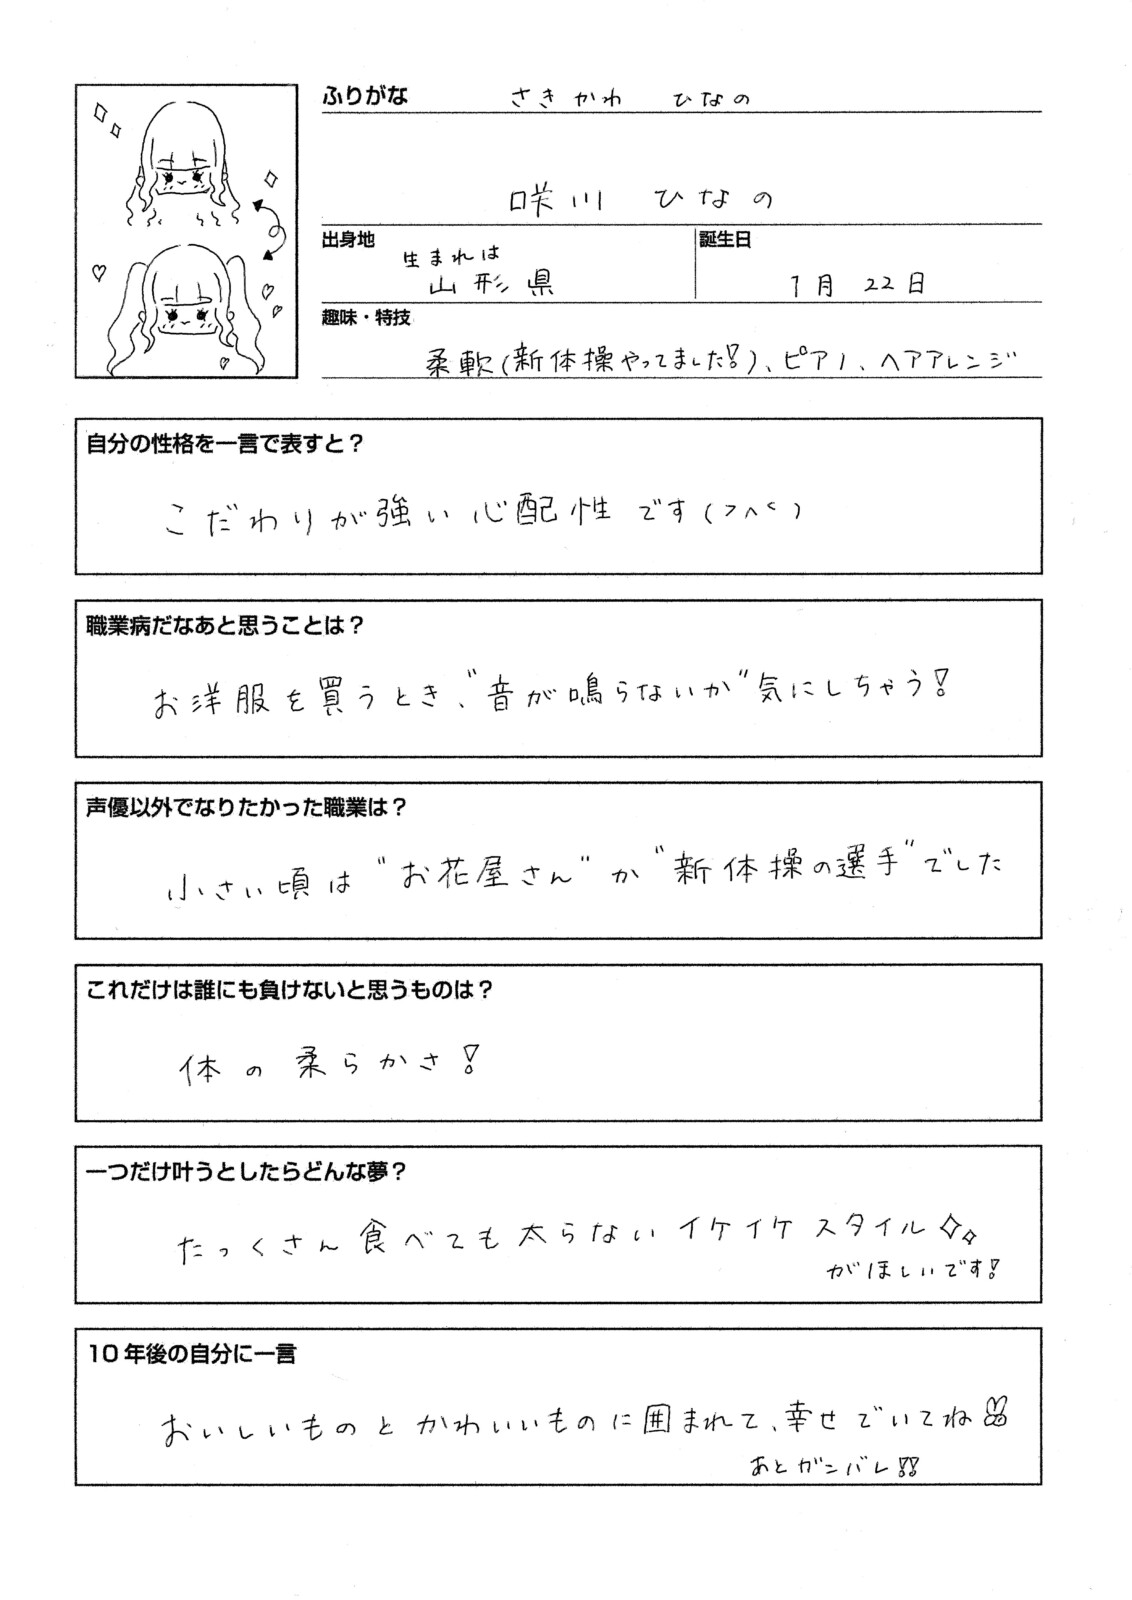 ふりがな さきかわ ひなの
咲川 ひなの
出身地 生まれは 山形県
誕生日 1月 22日
趣味・特技
柔軟(新体操やってました!)、ピアノ、ヘアアレンジ
自分の性格を一言で表すと？
こだわりが強い心配性です(>^<)
職業病だなあと思うことは？
お洋服を買うとき、"音が鳴らないか"気にしちゃう!
声優以外でなりたかった職業は？
小さい頃は"お花屋さん"か"新体操の選手"でした
これだけは誰にも負けないと思うものは？
体の柔らかさ!
一つだけ叶うとしたらどんな夢？
たっくさん食べても太らないイケイケスタイル
がほしいです!
10年後の自分に一言
おいしいものとかわいいものに囲まれて、幸せでいてね
あとガンバレ!!